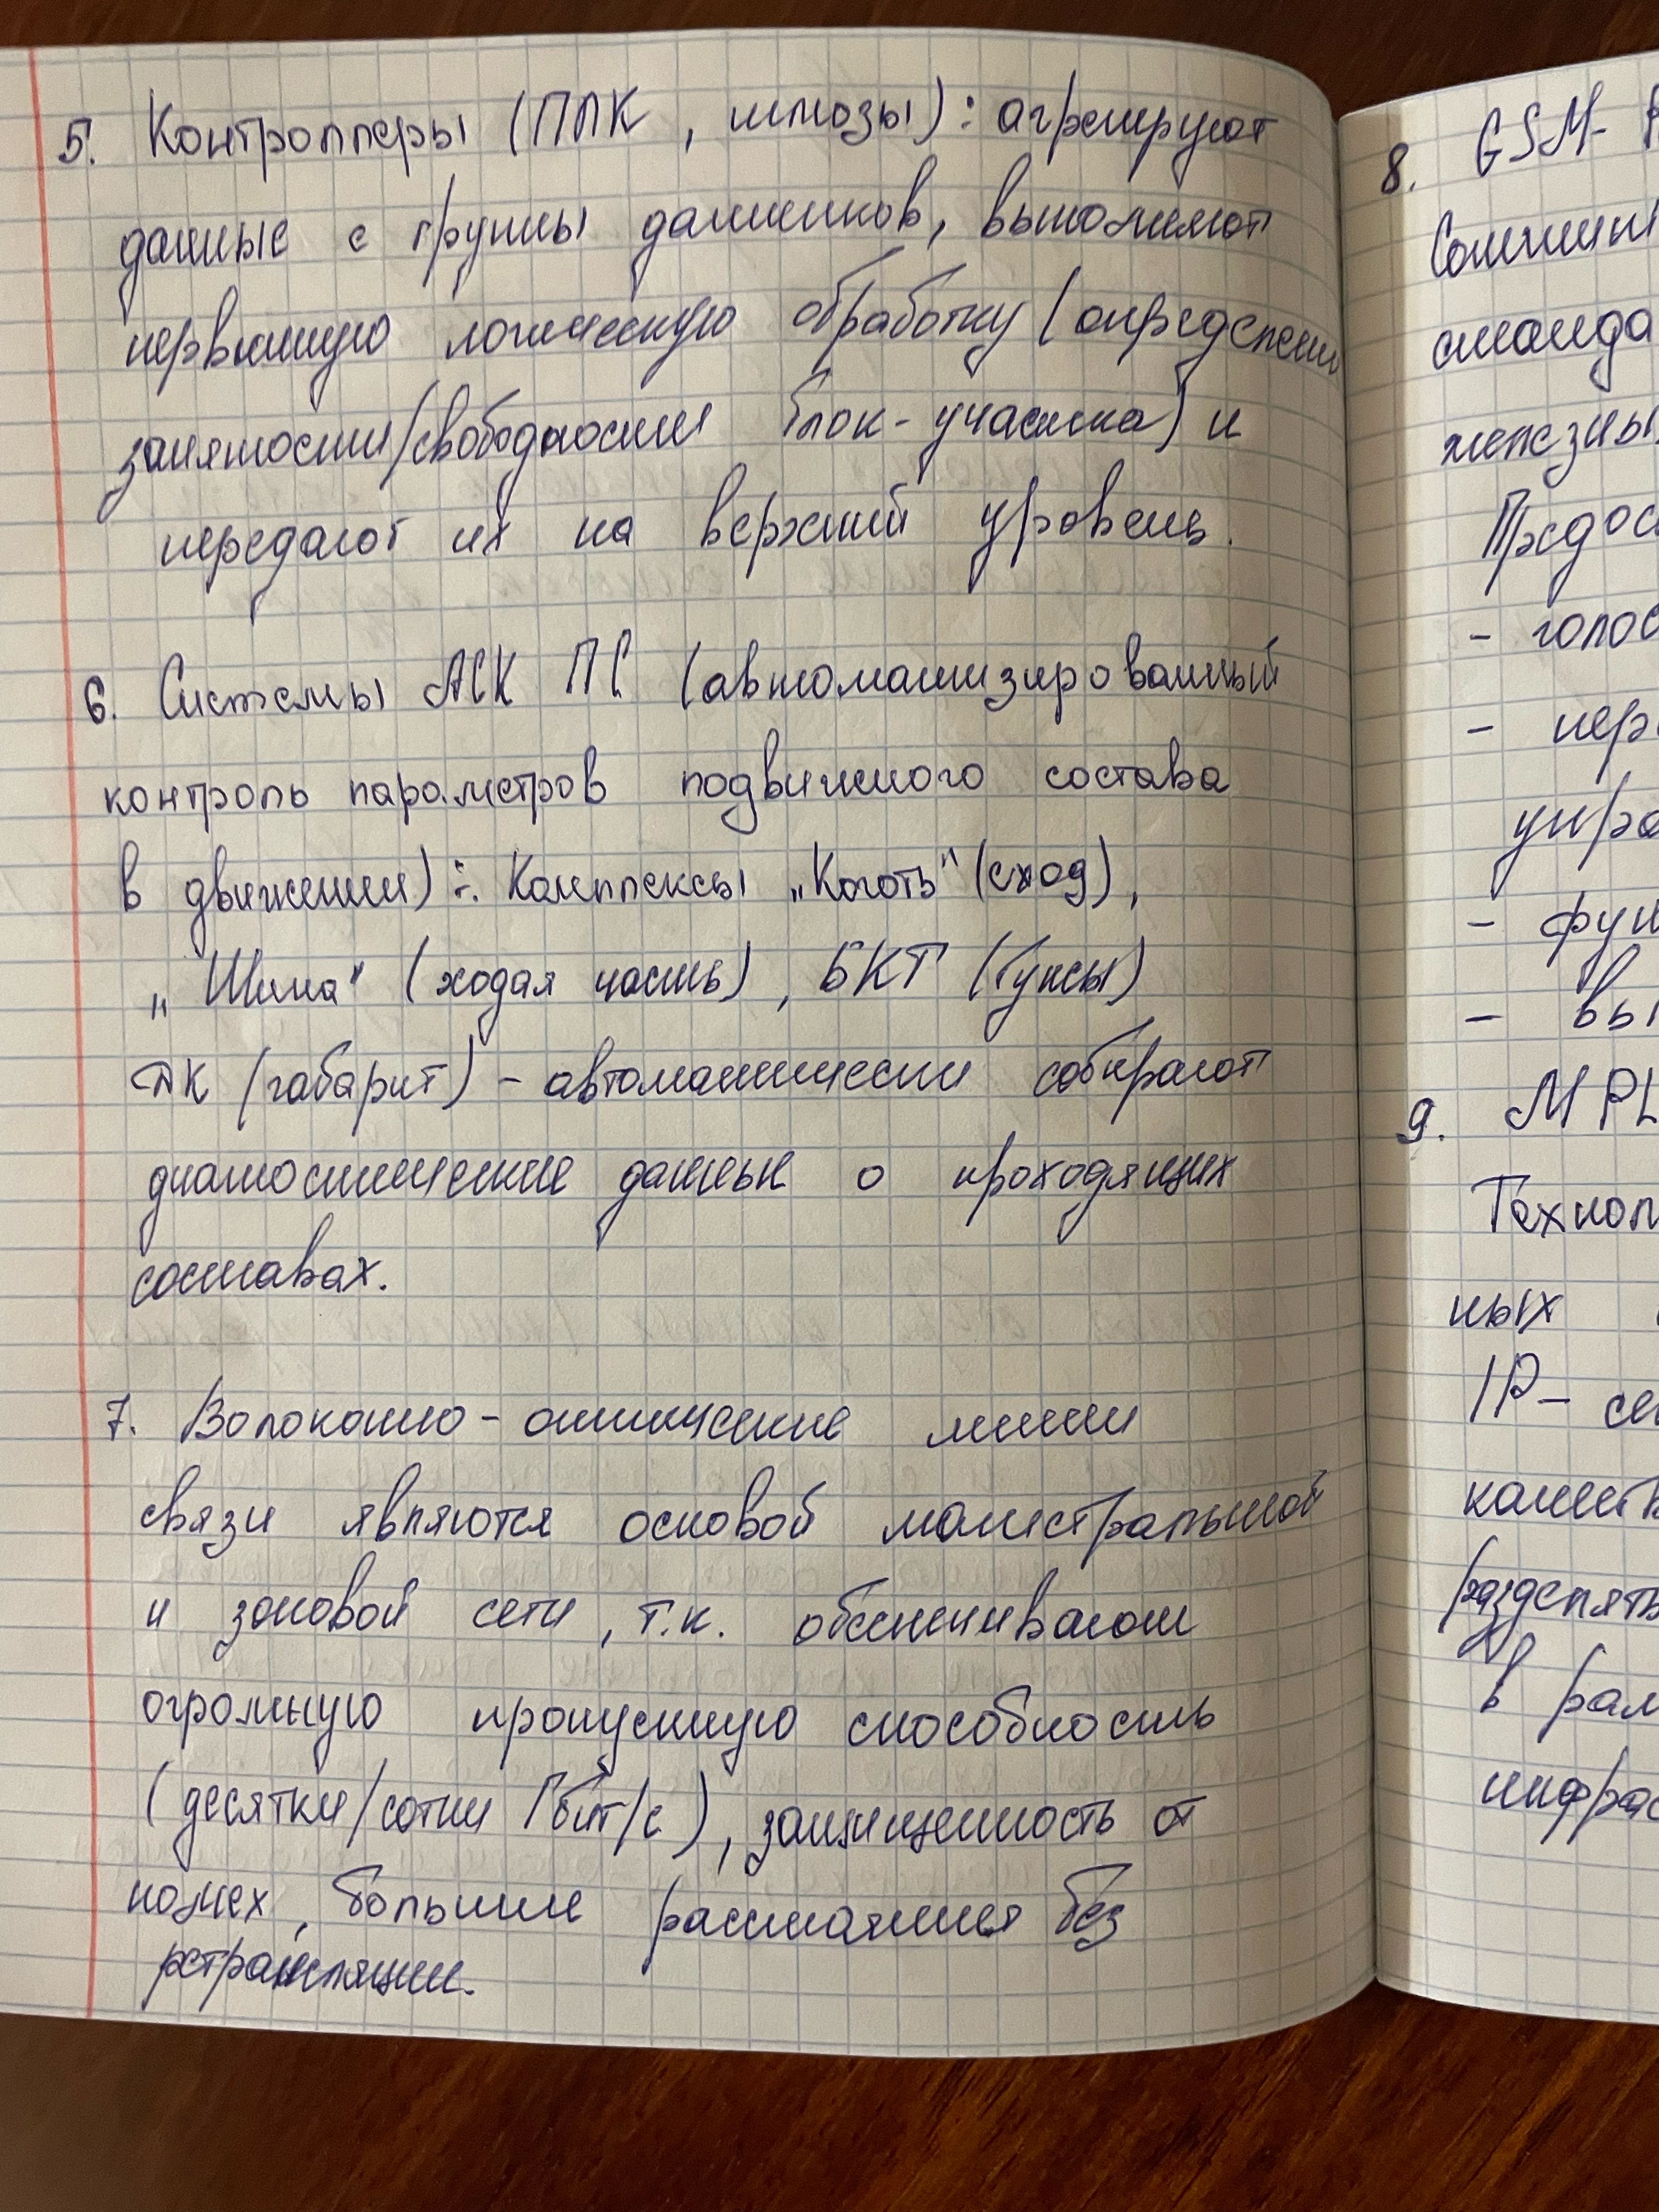 5. Контроллеры (ПЛК, шлюзы): агрегируют
данные с группы датчиков, выполняют
первичную логическую обработку (определение
занятости/свободности блок-участка) и
передают их на верхний уровень.
6. Системы АСК ПС (автоматизированный
контроль параметров подвижного состава
в движении): Комплексы „Коготь" (сход),
„Шина" (ходая часть), БКТ (буксы)
ДК (габарит) - автоматически собирают
диагностические данные о проходящих
составах.
7. Волоконно-оптические линии
связи являются основой магистральной
и зоновой сети, т.к. обеспечивают
огромную пропускную способность
(десятки/сотни Гбит/с), защищенность от
помех, большие расстояния без
ретрансляции.
8. GSM-
станда
железны
Предос
- голос
- пер
упра
- фун
- вы
9. MPL
Технол
ных
IP- се
качеств
разделять
в рам
инфрас